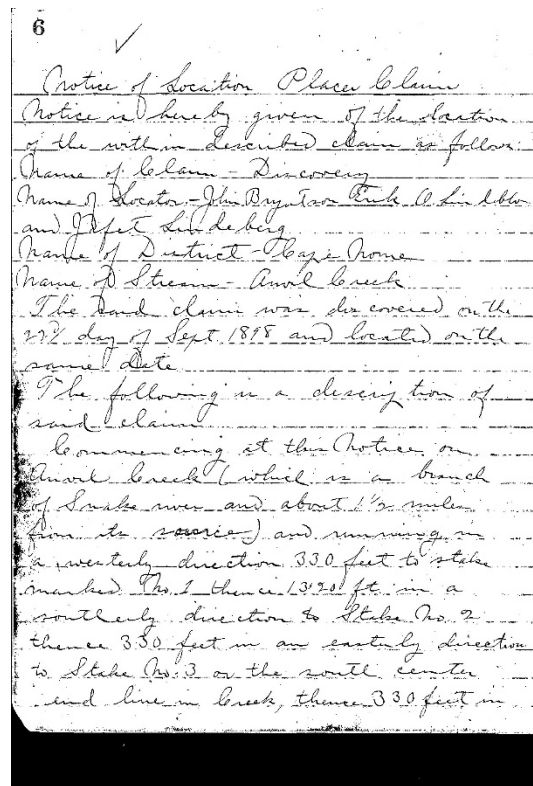 6
Notice of Location Placer Claim
Notice is hereby given of the location
of the within described claim as follows.
Name of Claim - Discovery
Name of Locator - John Bryntson Erik O Lindblom
and Jafet Lindeberg
Name of District - Cape Nome
Name of Stream - Anvil Creek
The said claim was discovered on the
22d day of Sept 1898 and located on the
same date
The following is a description of
said claim
Commencing at this Notice on
Anvil Creek (which is a branch
of Snake river and about 1 1/2 miles
from its source) and running in
a westerly direction 330 feet to stake
marked No. 1 thence 1320 ft in a
southerly direction to Stake No. 2
thence 330 feet in an easterly direction
to Stake No. 3 on the south center
end line in Creek, thence 330 feet in